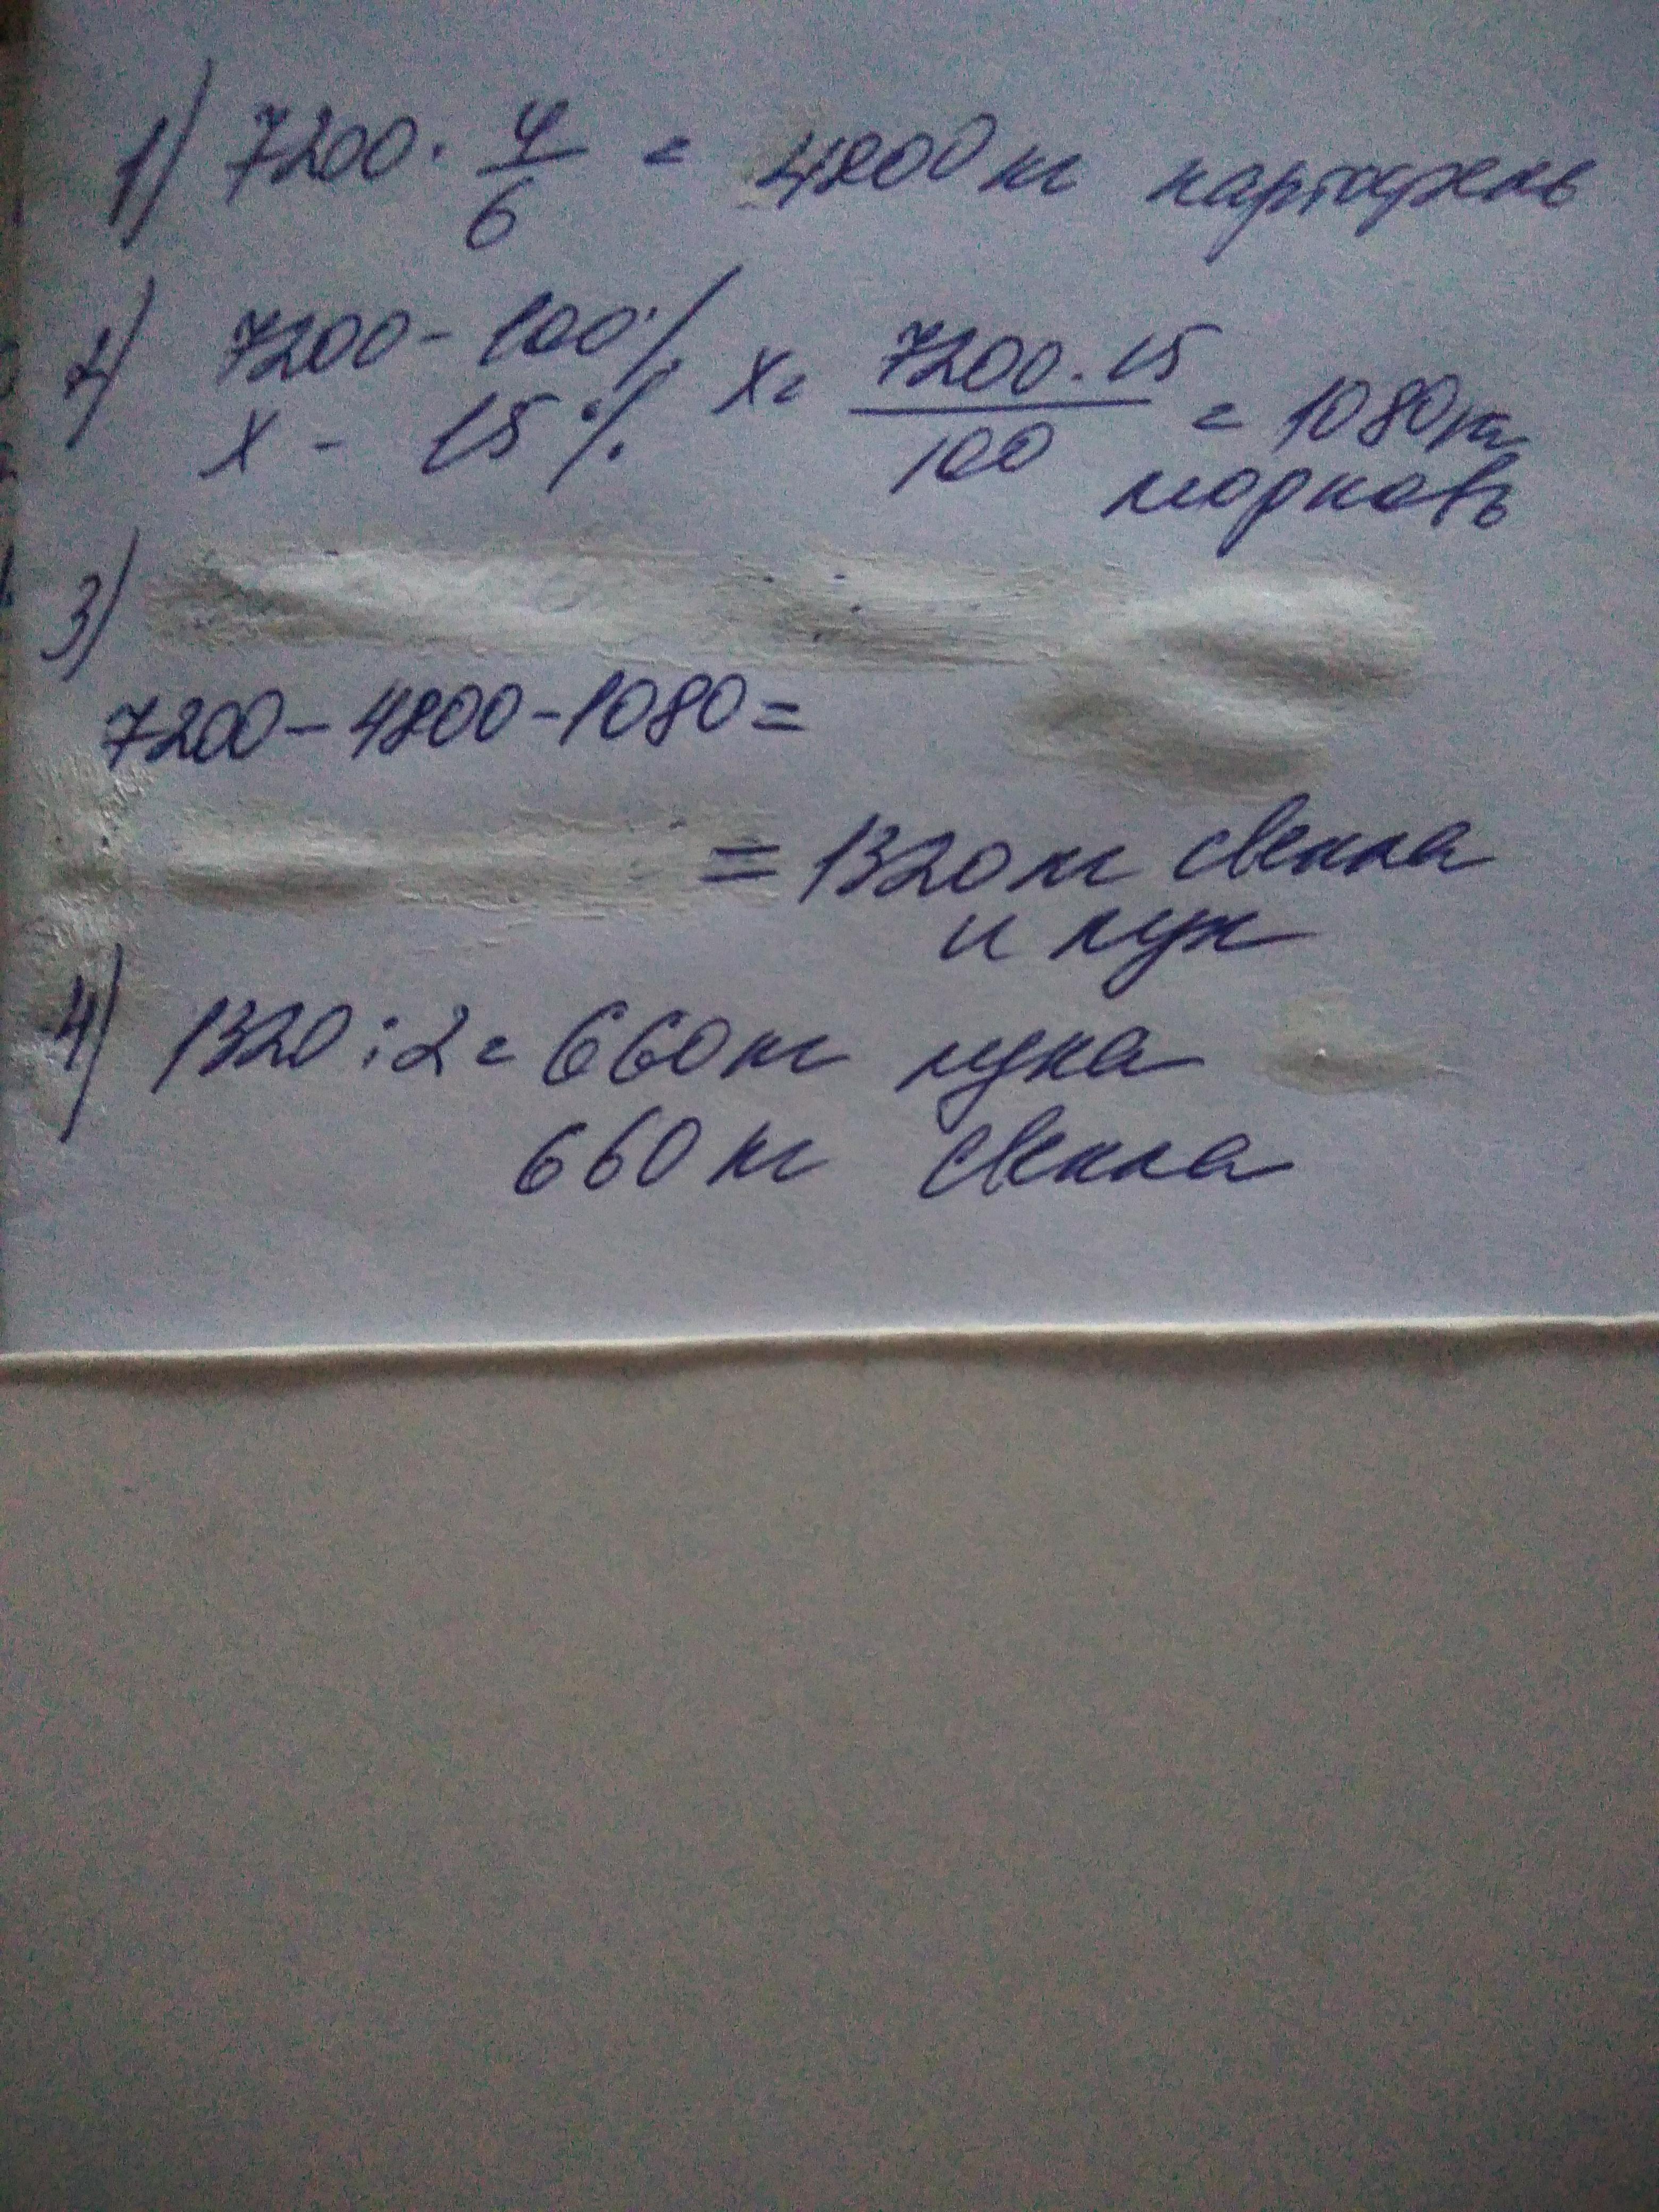 1) 7200 · 4/6 = 4800 кг картофель
2) 7200 - 100% x = 7200 · 15 / 100 = 1080 кг
x - 15% морковь
3)
7200 - 4800 - 1080 =
= 1320 кг свекла
и лук
4) 1320 : 2 = 660 кг лука
660 кг свекла